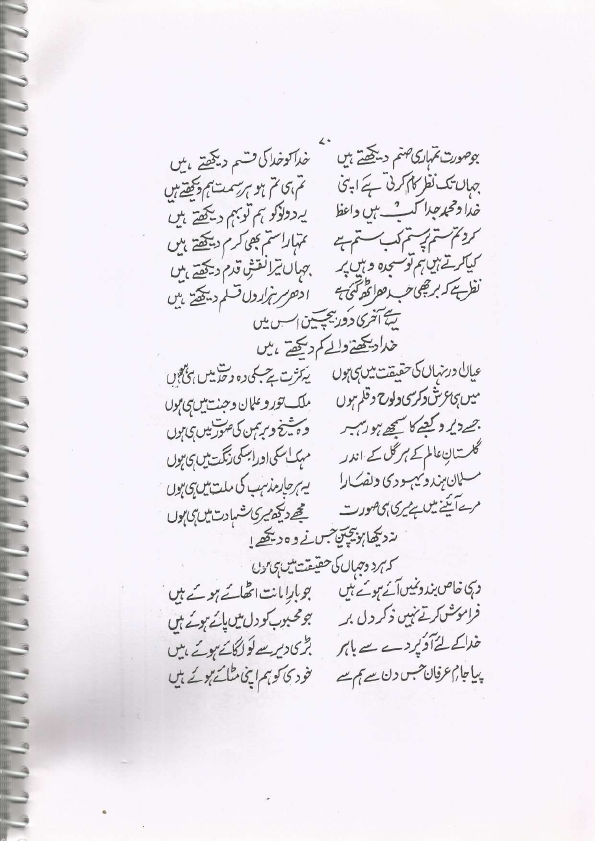 ۷۰
جو صورت تمہاری صنم دیکھتے ہیں خدا کو خدا کی قسم دیکھتے ہیں
جہاں تک نظر کام کرتی ہے اپنی تم ہی تم ہو ہر سمت ہم دیکھتے ہیں
خدا و محمد جدا کب ہیں واعظ یہ دونو کو ہم تو بہم دیکھتے ہیں
کرو تم ستم پر ستم کب ستم ہے تمہارا ستم بھی کرم دیکھتے ہیں
کیا کرتے ہیں ہم تو سجدہ وہیں پر جہاں تیرا نقش قدم دیکھتے ہیں
نظر ہے کہ برچھی جدھر اٹھ گئی ہے ادھر سر ہزاروں قلم دیکھتے ہیں
یہ ہے آخری دور بیچین اس میں
خدا دیکھنے والے کم دیکھتے ہیں
عیاں در نہاں کی حقیقت میں ہی ہوں یہ کثرت ہے جسکی وہ وحدت میں ہی ہوں
میں ہی عرش و کرسی و لوح و قلم ہوں ملک حور و غلمان و جنت میں ہی ہوں
جسے دیر و کعبے کا سمجھے ہو رہبر وہ شیخ و برہمن کی صورت میں ہی ہوں
گلستان عالم کے ہر گل کے اندر مہک اسکی اور اسکی رنگت میں ہی ہوں
مسلمان ہندو یہودی و نصارا یہ ہر چار مذہب کی ملت میں ہی ہوں
مرے آئینے میں ہے میری ہی صورت مجھے دیکھ میری شہادت میں ہی ہوں
نہ دیکھا ہو بیچین جس نے وہ دیکھے!
کہ ہر دو جہاں کی حقیقت میں ہی ہوں
وہی خاص بندو نمیں آئے ہوئے ہیں جو بار امانت اٹھائے ہوئے ہیں
فراموش کرتے نہیں ذکر دلبر جو محبوب کو دل میں پائے ہوئے ہیں
خدا کے لئے آؤ پردے سے باہر بڑی دیر سے لو لگائے ہوئے ہیں
پیا جام عرفان جس دن سے ہم سے خودی کو ہم اپنی مٹائے ہوئے ہیں